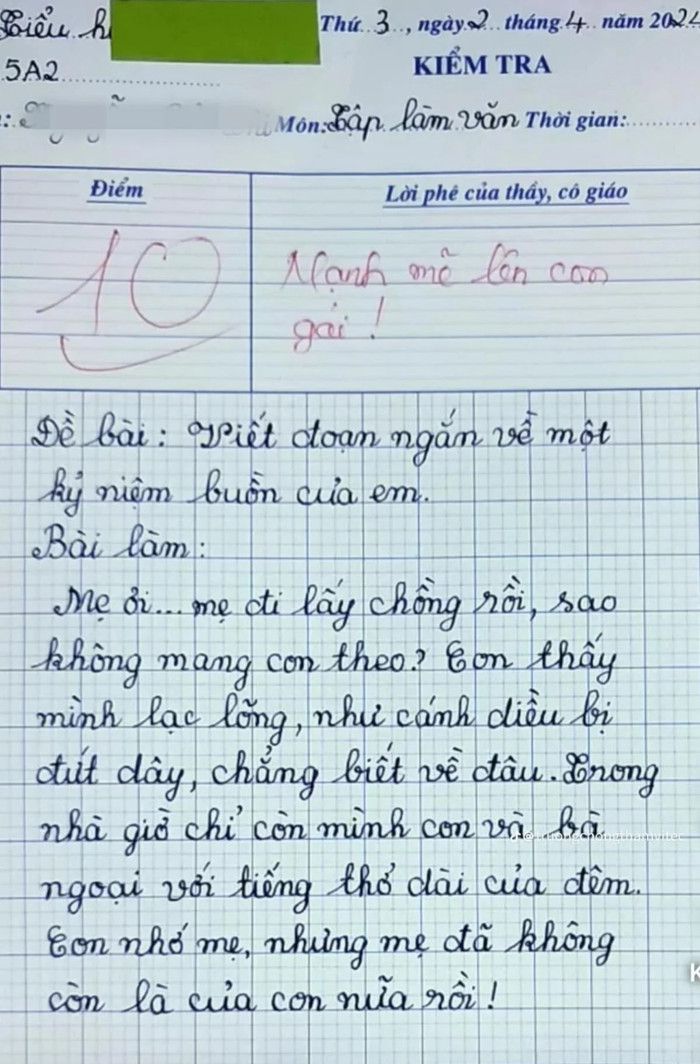 Tiểu h
Thứ 3, ngày 2 tháng 4 năm 2024
5A2
KIỂM TRA
Môn: Tập làm văn Thời gian:
Điểm
Lời phê của thầy, cô giáo
10
Mạnh mẽ lên con
gái!
Đề bài: Viết đoạn ngắn về một
kỷ niệm buồn của em.
Bài làm:
Mẹ ơi... mẹ đi lấy chồng rồi, sao
không mang con theo? Con thấy
mình lạc lõng, như cánh diều bị
đứt dây, chẳng biết về đâu. Trong
nhà giờ chỉ còn mình con và bà
ngoại với tiếng thở dài của đêm.
Con nhớ mẹ, nhưng mẹ đã không
còn là của con nữa rồi!
K